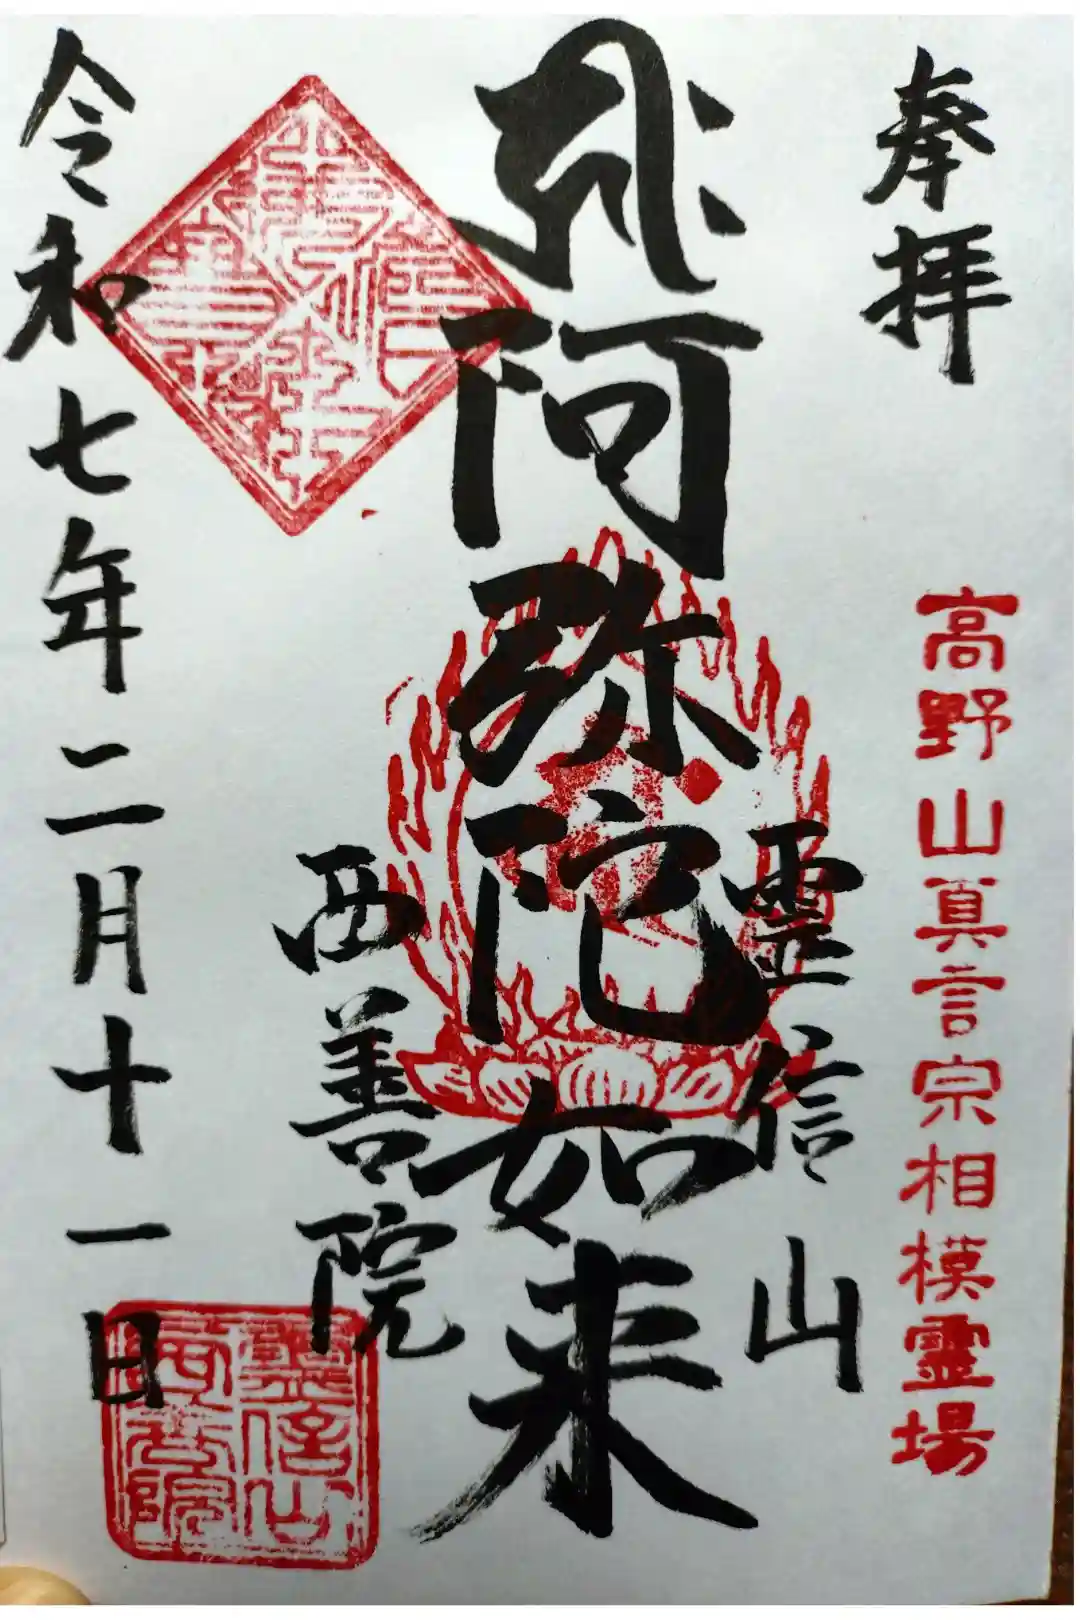 奉拝
高野山真言宗相模霊場
霊信山
阿弥陀如来
西善院
令和七年二月十一日
霊信山
西善院